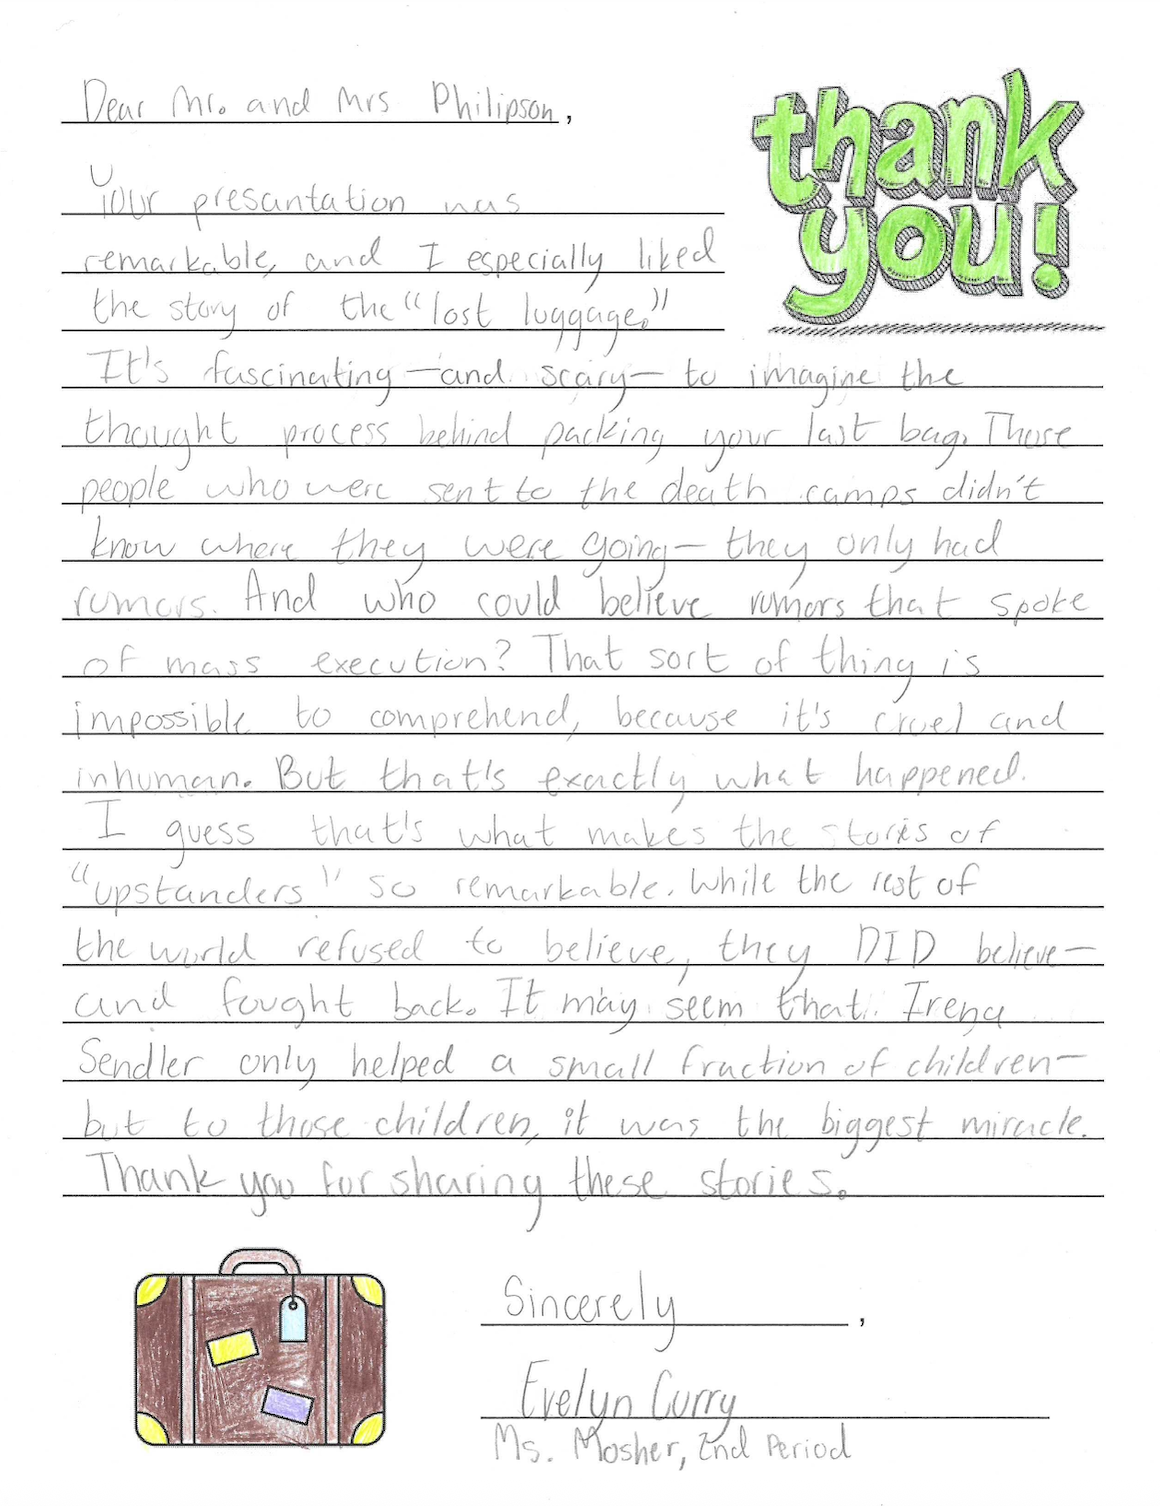 Dear Mr. and Mrs Philipson,
thank
you!
Your presantation was
remarkable, and I especially liked
the story of the "lost luggage."
It's fascinating —and scary— to imagine the
thought process behind packing your last bag. Those
people who were sent to the death camps didn't
know where they were going— they only had
rumors. And who could believe rumors that spoke
of mass execution? That sort of thing is
impossible to comprehend, because it's cruel and
inhuman. But that's exactly what happened.
I guess that's what makes the stories of
"upstanders" so remarkable. While the rest of
the world refused to believe, they DID believe—
and fought back. It may seem that Irena
Sendler only helped a small fraction of children—
but to those children, it was the biggest miracle.
Thank you for sharing these stories.
Sincerely,
Evelyn Curry
Ms. Mosher, 2nd Period